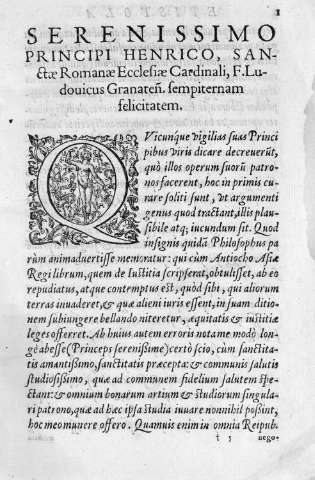 1
SERENISSIMO
PRINCIPI HENRICO, SAN-
ctæ Romanæ Ecclesiæ Cardinali, F. Lu-
douicus Granateñ. sempiternam
felicitatem.
QVicunque vigilias suas Princi
pibus viris dicare decreuerũt,
quò illos operum suorũ patro-
nos facerent, hoc in primis cu-
rare soliti sunt, vt argumenti
genus quod tractant, illis plau-
sibile atq; iucundum sit. Quod
insignis quidã Philosophus pa
rùm animaduertisse memoratur: qui cùm Antiocho Asiæ
Regi librum, quem de Iustitia scripserat, obtulisset, ab eo
repudiatus, atque contemptus est, quòd sibi, qui aliorum
terras inuaderet, & quæ alieni iuris essent, in suam ditio-
nem subiungere bellando niteretur, æquitatis & iustitiæ
leges offerret. Ab huius autem erroris nota me modò lon-
gè abesse (Princeps serenissime) certò scio, cùm sanctita-
tis amantissimo, sanctitatis præcepta: & communis salutis
studiosissimo, quæ ad communem fidelium salutem spe-
ctant: & omnium bonarum artium & studiorum singula-
ri patrono, quæ ad hæc ipsa studia iuuare nonnihil possint,
hoc meo munere offero. Quamuis enim in omnia Reipub.
t 5 nego-